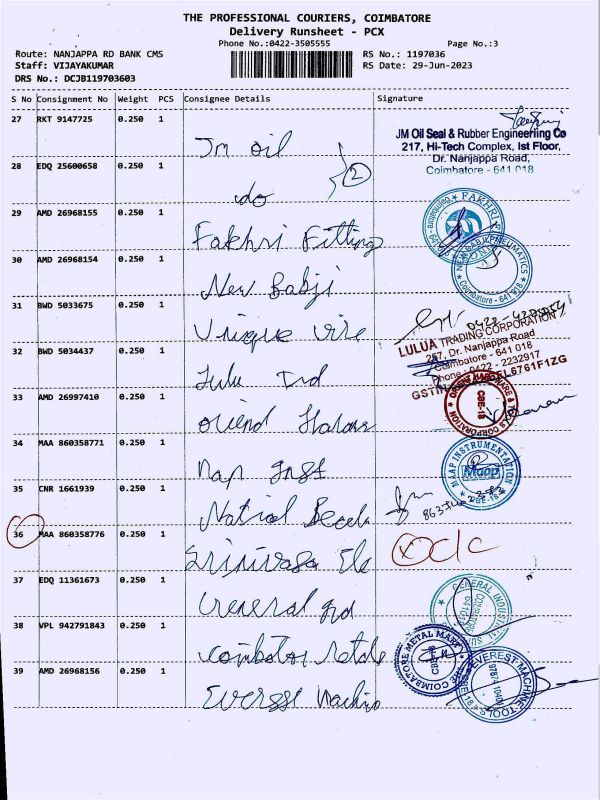 THE PROFESSIONAL COURIERS, COIMBATORE
Delivery Runsheet - PCX
Phone No.:0422-3505555 Page No.:3
Route: NANJAPPA RD BANK CMS RS No.: 1197036
Staff: VIJAYAKUMAR RS Date: 29-Jun-2023
DRS No.: DCJB119703603
S No Consignment No Weight PCS Consignee Details Signature
27 RKT 9147725 0.250 1 Jm oil
JM Oil Seal & Rubber Engineering Co
217, Hi-Tech Complex, Ist Floor,
Dr. Nanjappa Road,
Coimbatore - 641 018
28 EDQ 25600658 0.250 1 do 2
29 AMD 26968155 0.250 1 Fakhri Fitting
FAKHRI
30 AMD 26968154 0.250 1 New Babji
NEW BABJI PNEUMATICS
Coimbatore - 641 018
31 BWD 5033675 0.250 1 Unique
LULUA TRADING CORPORATION
267, Dr. Nanjappa Road
Coimbatore - 641 018
Phone: 0422 - 2232917
32 BWD 5034437 0.250 1 Lulu Trd
33 AMD 26997410 0.250 1
CBE-18
34 MAA 860358771 0.250 1 Map Inst
MAAP INSTRUMENTATION
Maap
CBE-18
35 CNR 1661939 0.250 1
36 MAA 860358776 0.250 1 Srinivasa Ele
37 EDQ 11361673 0.250 1 General
GENERAL INDUSTRIAL
38 VPL 942791843 0.250 1
COIMBATORE METAL MART
39 AMD 26968156 0.250 1
EVEREST MACHINE TOOLS